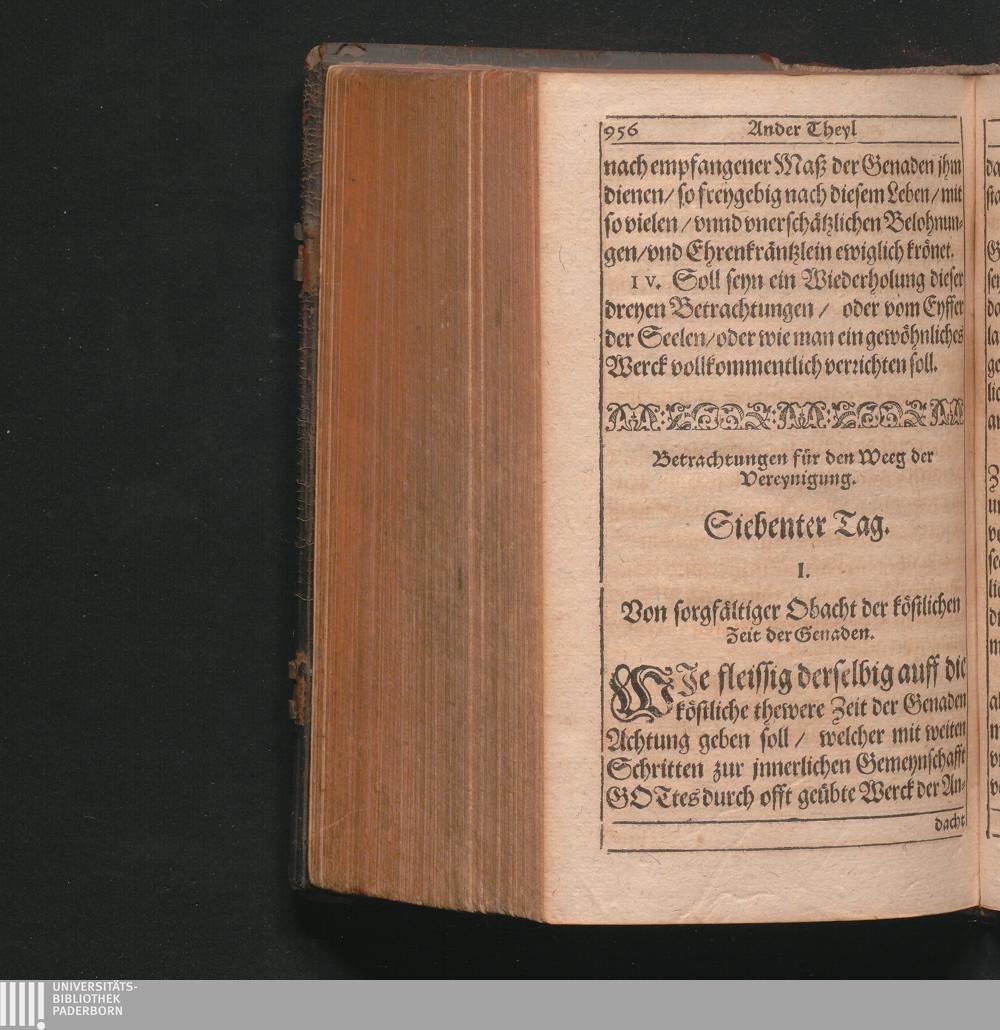 956 Ander Theyl
nach empfangener Maß der Genaden jhm
dienen/ so freygebig nach diesem Leben/ mit
so vielen / vnnd vnerschätzlichen Belohnun-
gen/ vnd Ehrenkräntzlein ewiglich krönet.
IV. Soll seyn ein Wiederholung dieser
dreyen Betrachtungen / oder vom Eyffer
der Seelen/ oder wie man ein gewöhnliches
Werck vollkommentlich verrichten soll.
Betrachtungen für den Weeg der
Vereynigung.
Siebenter Tag.
I.
Von sorgfältiger Obacht der köstlichen
Zeit der Genaden.
WJe fleissig derselbig auff die
köstliche thewere Zeit der Genaden
Achtung geben soll / welcher mit weiten
Schritten zur jnnerlichen Gemeynschafft
GOTtes durch offt geübte Werck der An-
dacht
UNIVERSITÄTS-
BIBLIOTHEK
PADERBORN